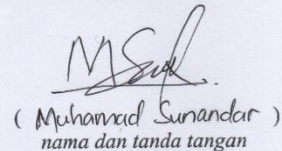 ( Muhamad Sunandar )
nama dan tanda tangan